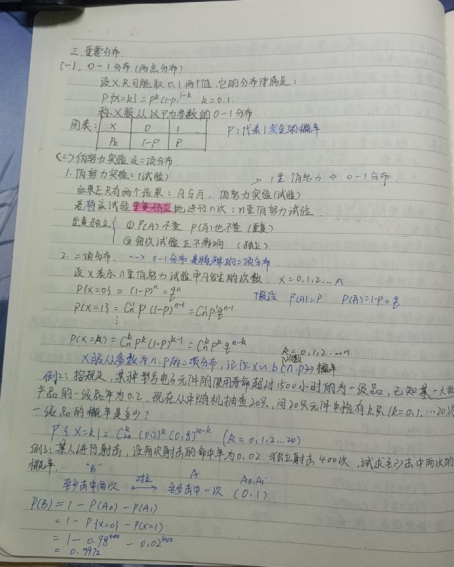 三.重要分布
(一). 0-1分布 (两点分布)
设X只可能取0,1两个值,它的分布律满足:
P{X=k}=p^k(1-p)^{1-k} k=0,1.
称X服从以P为参数的0-1分布.
列表: X 0 1 P:代表1发生的概率
Pk 1-P P
(二)伯努利实验及二项分布
1.伯努利实验:(试验) 1重伯努力 0-1分布
如果E只有两个结果:A与Ā, 伯努力实验(试验)
是将试验重复独立地进行n次:n重伯努力试验.
重复独立 ①P(A)不变 P(Ā)也不变 (重复)
②每次试验互不影响 (独立)
2.二项分布. 0-1分布是特殊的二项分布.
设X表示n重伯努力试验中A发生的次数, X=0,1,2,...n
P(X=0)=(1-p)^n=q^n 假设 P(A)=P P(Ā)=1-P=q
P(X=1)=C_n^1 P(1-P)^{n-1}=C_n^1 P q^{n-1}
⋮
P(X=k)=C_n^k P^k(1-P)^{n-k}=C_n^k P^k q^{n-k} k=0,1,2,...n
X服从参数为n.p的二项分布,记作X~b(n.p) 次数 概率
例2:按规定,某种型号电子元件的使用寿命超过1500小时的为一级品,已知某一大批
产品的一级品率为0.2,现在从中随机抽查20只,问20只元件中恰有k只(k=0,1,...20)
一级品的概率是多少?
P{X=k}=C_{20}^k (0.2)^k(0.8)^{20-k} (k=0,1,2,...20)
例3:某人进行射击,设每次射击的命中率为0.02.独立射击400次,试求至少击中两次的
概率. "B" A A0,A1
至少击中两次 对立 至多击中一次 (0.1)
P(B)=1-P(A0)-P(A1)
=1-P{X=0}-P(X=1)
=1-0.98^{400}-0.02^{400}
=0.9972